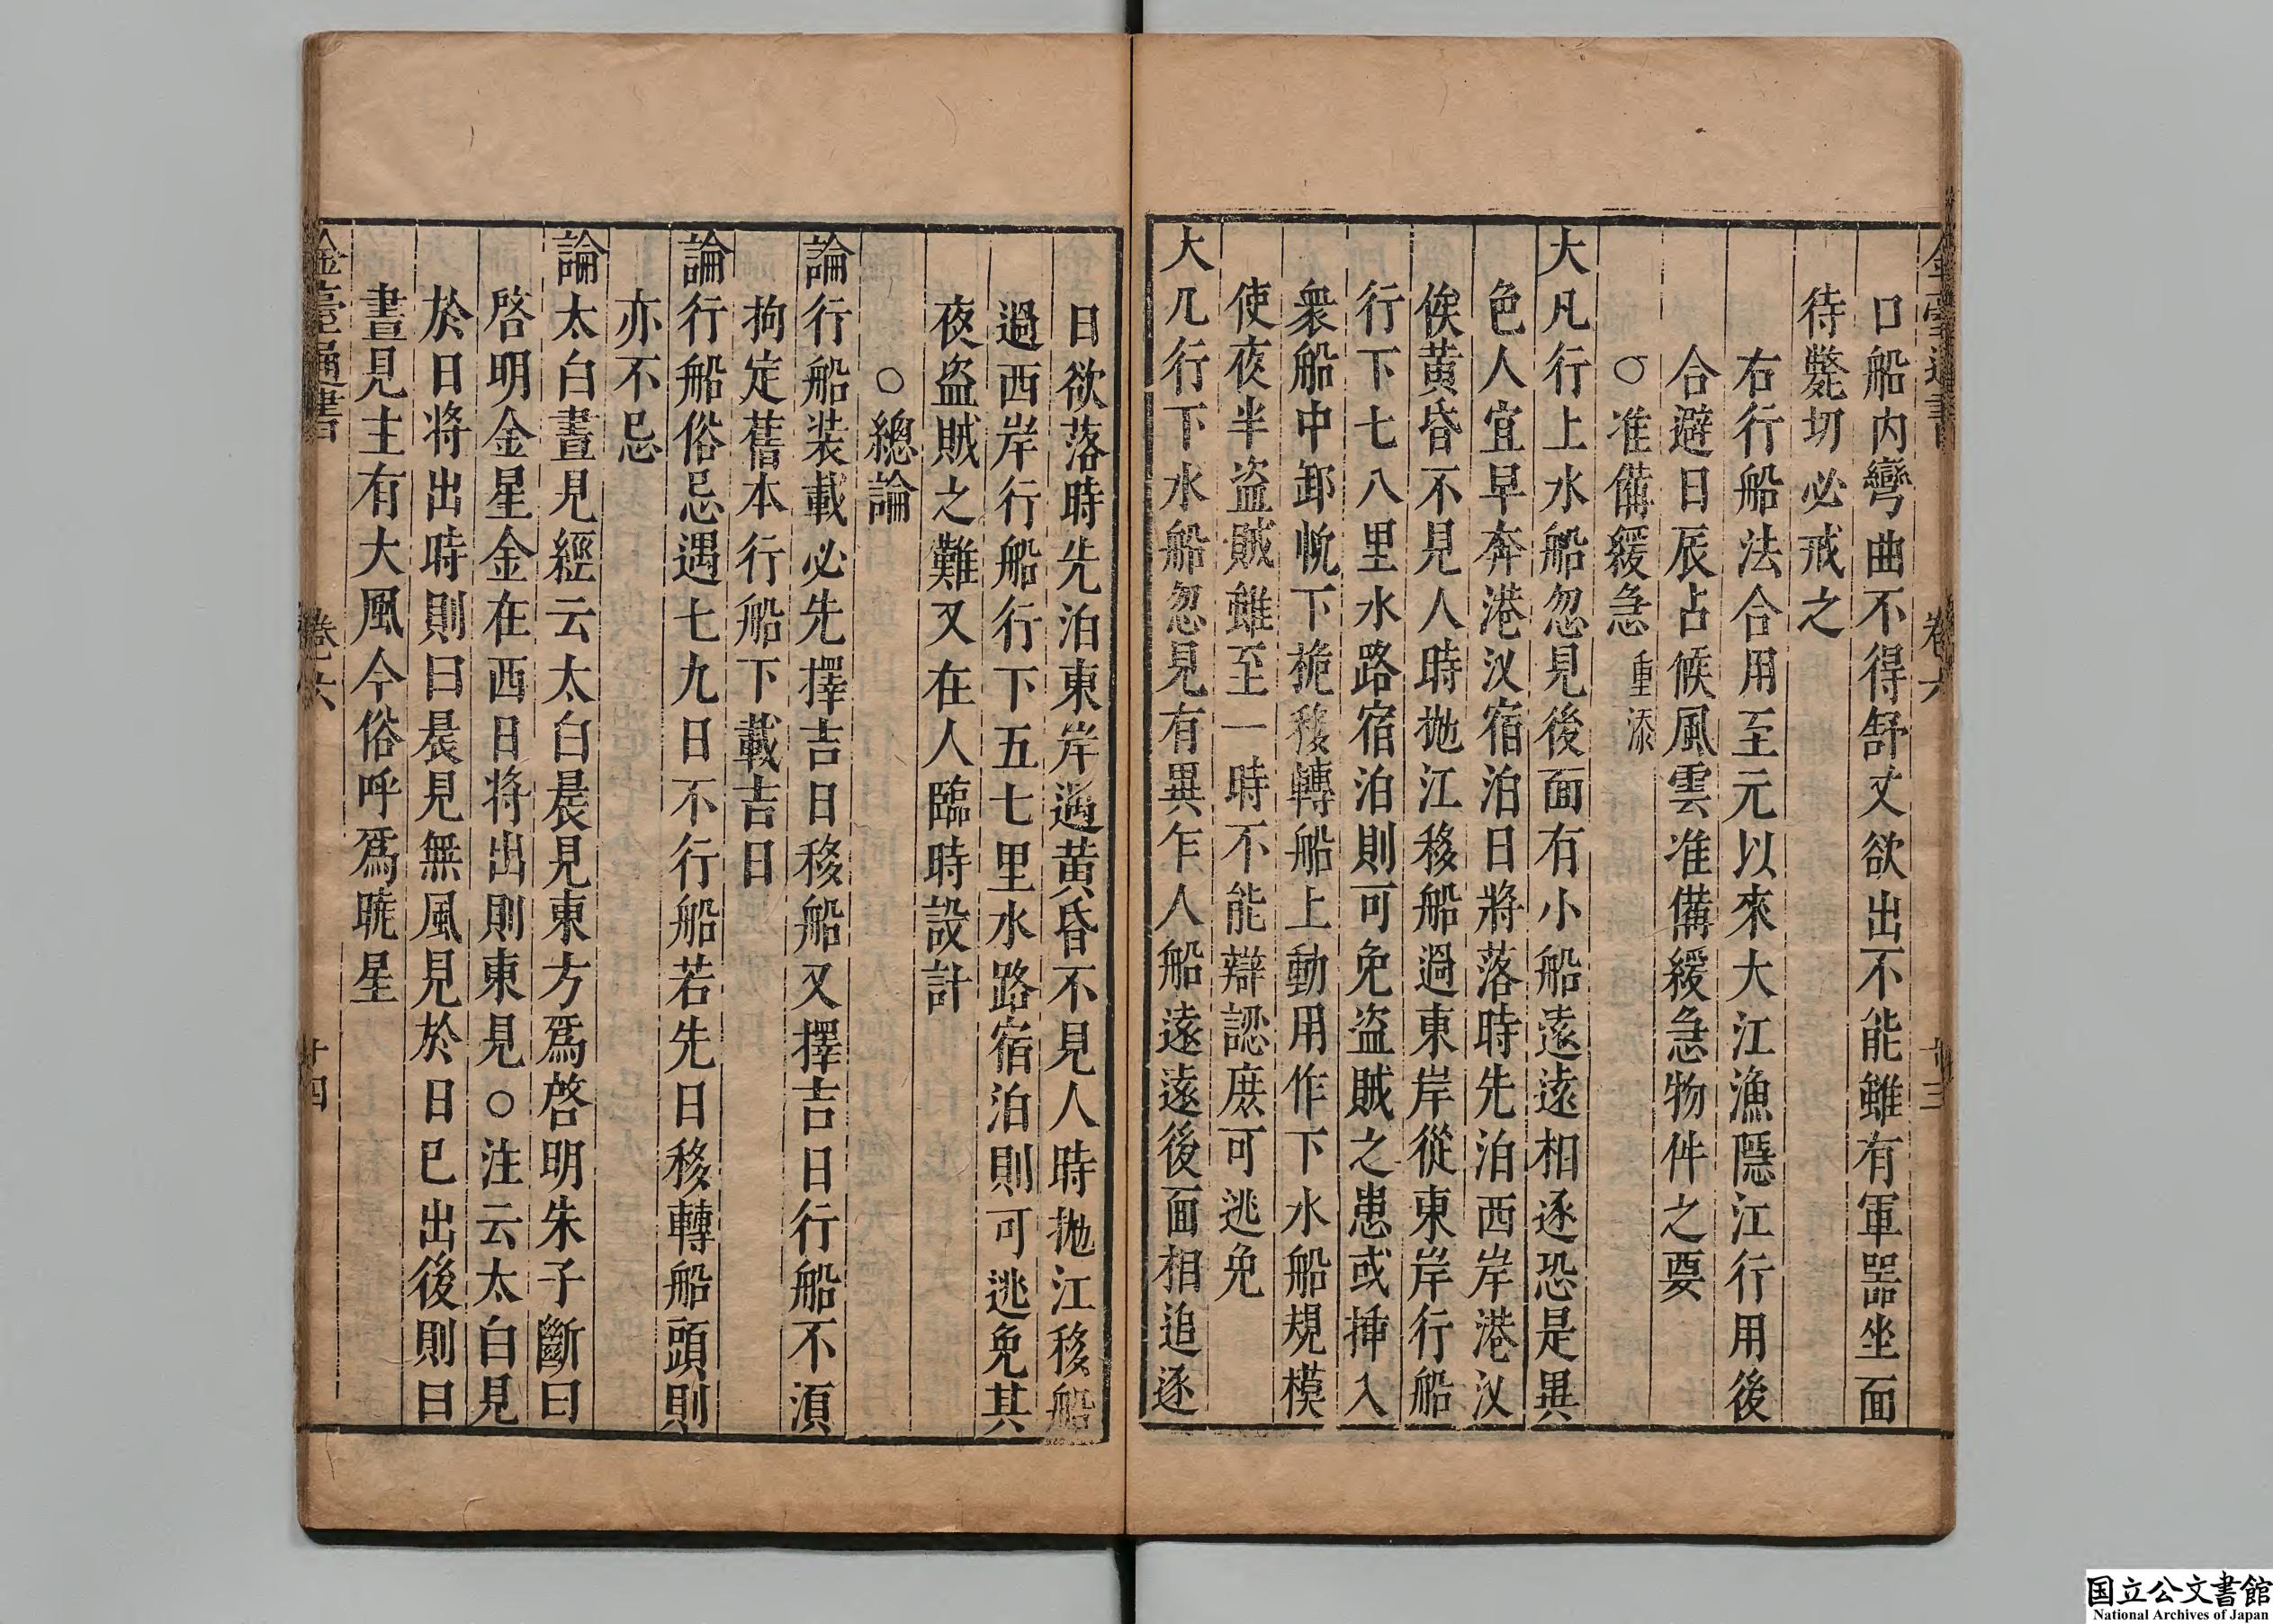 金臺通書　卷六　廿三
口船内彎曲不得舒丈欲出不能雖有軍器坐面
待斃切必戒之
右行船法合用至元以來大江漁隱江行用後
合避日辰占候風雲准備緩急物件之要
○准備緩急重添
大凡行上水船忽見後面有小船遠遠相逐恐是異
色人宜早奔港汊宿泊日將落時先泊西岸港汊
俟黄昏不見人時拋江移船過東岸從東岸行船
行下七八里水路宿泊則可免盗賊之患或挿入
衆船中卸帆下桅移轉船上動用作下水船規模
使夜半盗賊雖至一時不能辯認庶可逃免
大凡行下水船忽見有異乍人船遠遠後面相追逐
日欲落時先泊東岸過黄昏不見人時拋江移船
過西岸行船行下五七里水路宿泊則可逃免其
夜盗賊之難又在人臨時設計
○總論
論行船装載必先擇吉日移船又擇吉日行船不湏
拘定舊本行船下載吉日
論行船俗忌遇七九日不行船若先日移轉船頭則
亦不忌
論太白晝見經云太白晨見東方爲啓明朱子斷曰
啓明金星金在西日将出則東見○注云太白見
於日将出時則曰晨見無風見於日已出後則曰
晝見主有大風今俗呼爲曉星
金臺通書　卷六　廿四
国立公文書館
National Archives of Japan